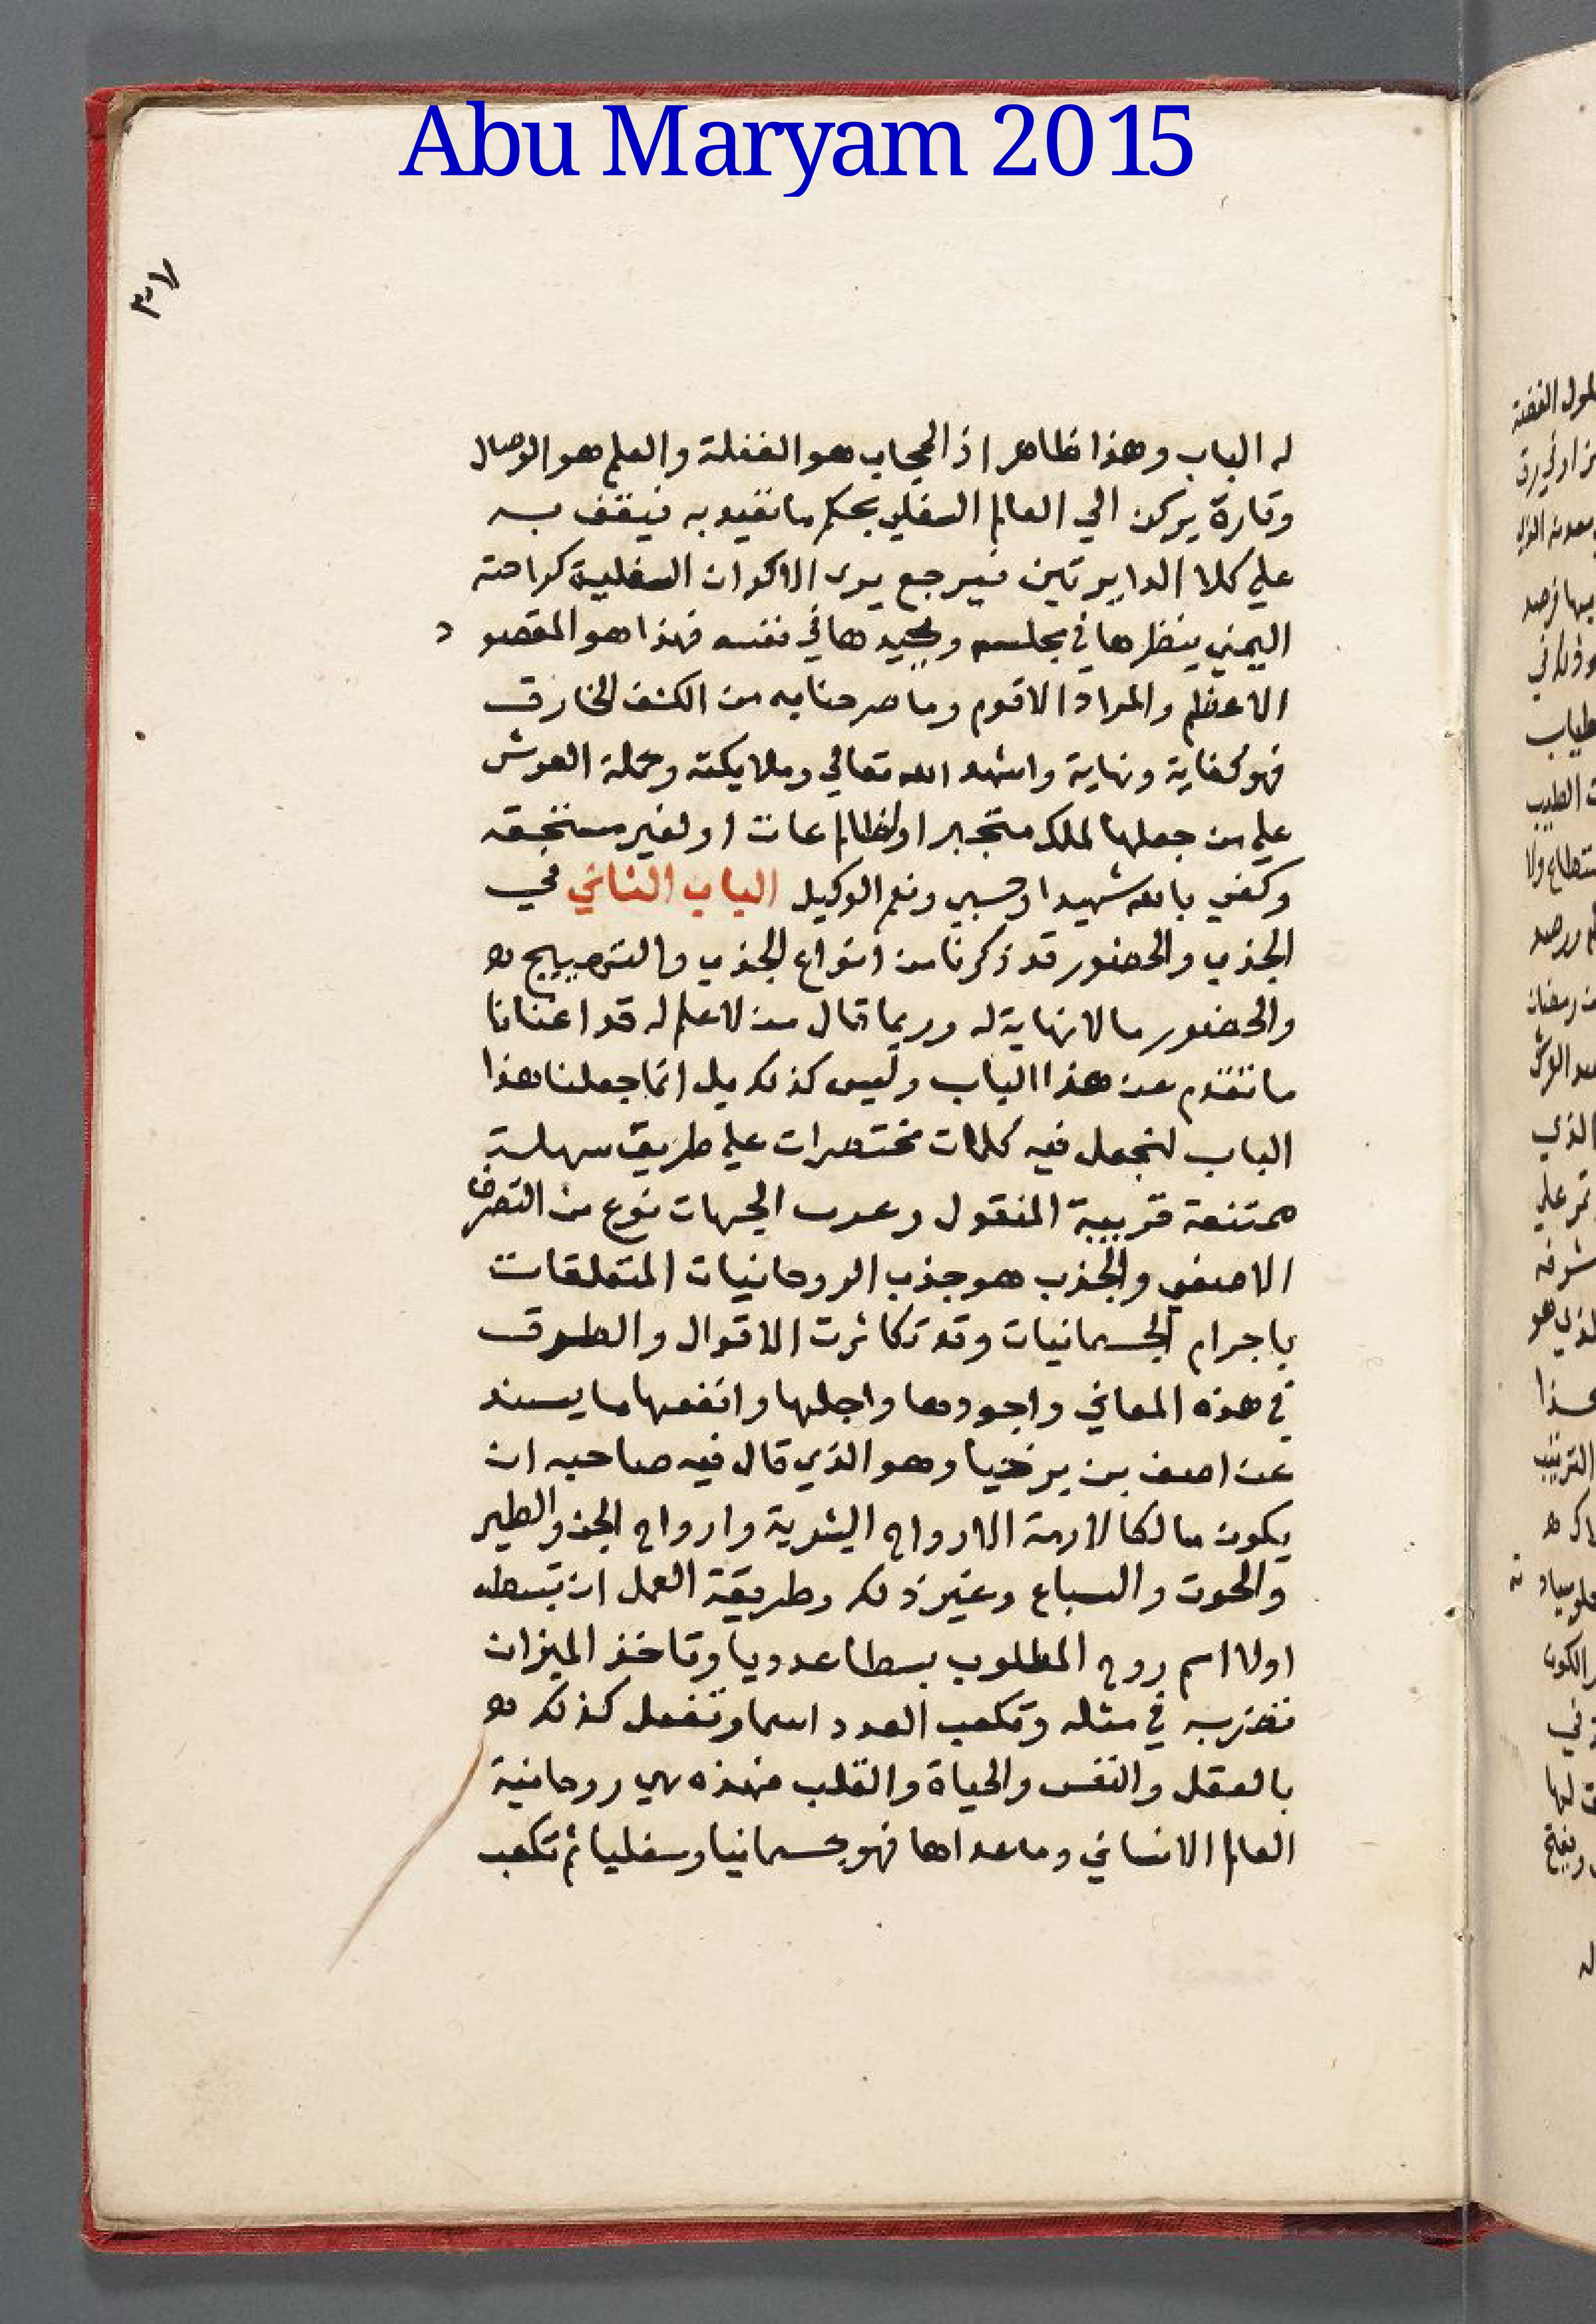 Abu Maryam 2015
٣٧
له الباب وهذا ظاهر اذ الحجاب هو الغفلة والعلم هو الوصال
وتارة يركن الي العالم السفلي بحكم ما تقيد به فيقف به
علي كلا الدايرتين فيرجع يرى الاكوان السفلية كراحته
اليمني ينظرها في مجلسه ويجيدها في نفسه فهذا هو المقصود
الاعظم والمراد الاقوم وما صرحنا به من الكشف الخارق
فهو كفاية ونهاية واشهد الله تعالي وملايكته وحملة العرش
علي من جعلها لملك متجبر او لظالم عات او لغير مستحقه
وكفي بالله شهيدا وحسبي ونعم الوكيل الباب الثاني في
الجذب والحضور قد ذكرنا من انواع الجذب والتهييج
والحضور ما لا نهاية له وربما قال من لا علم له قد اغنانا
ما تقدم عن هذا الباب وليس كذلك بل انما جعلنا هذا
الباب لنجعل فيه كلمات مختصرات علي طريق سهلة
ممتنعة قريبة المنقول الجهات نوع من التصرف
الاصفي والجذب هو جذب الروحانيات المتعلقات
باجرام الجسمانيات وقد تكاثرت الاقوال والطرق
في هذه المعاني واجودها واجلها وانفعها ما يسند
عن اصف بن برخيا وهو الذي قال فيه صاحبه ان
يكون مالكا لازمة الارواح البشرية وارواح الجن والطير
والحوت والسباع وغير ذلك وطريقة العمل ان تبسط
اولا اسم روح المطلوب بسطا عدديا وتاخذ الميزان
تضربه في مثله وتكعب العدد اسما وتفعل كذلك
بالعقل والنفس والحياة والقلب فهذه هي روحانية
العالم الانساني وما عداها فهو جسمانيا وسفليا ثم تكعب